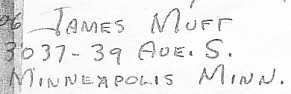 06 JAMES MUFF
3037-39 AVE. S.
MINNEAPOLIS MINN.